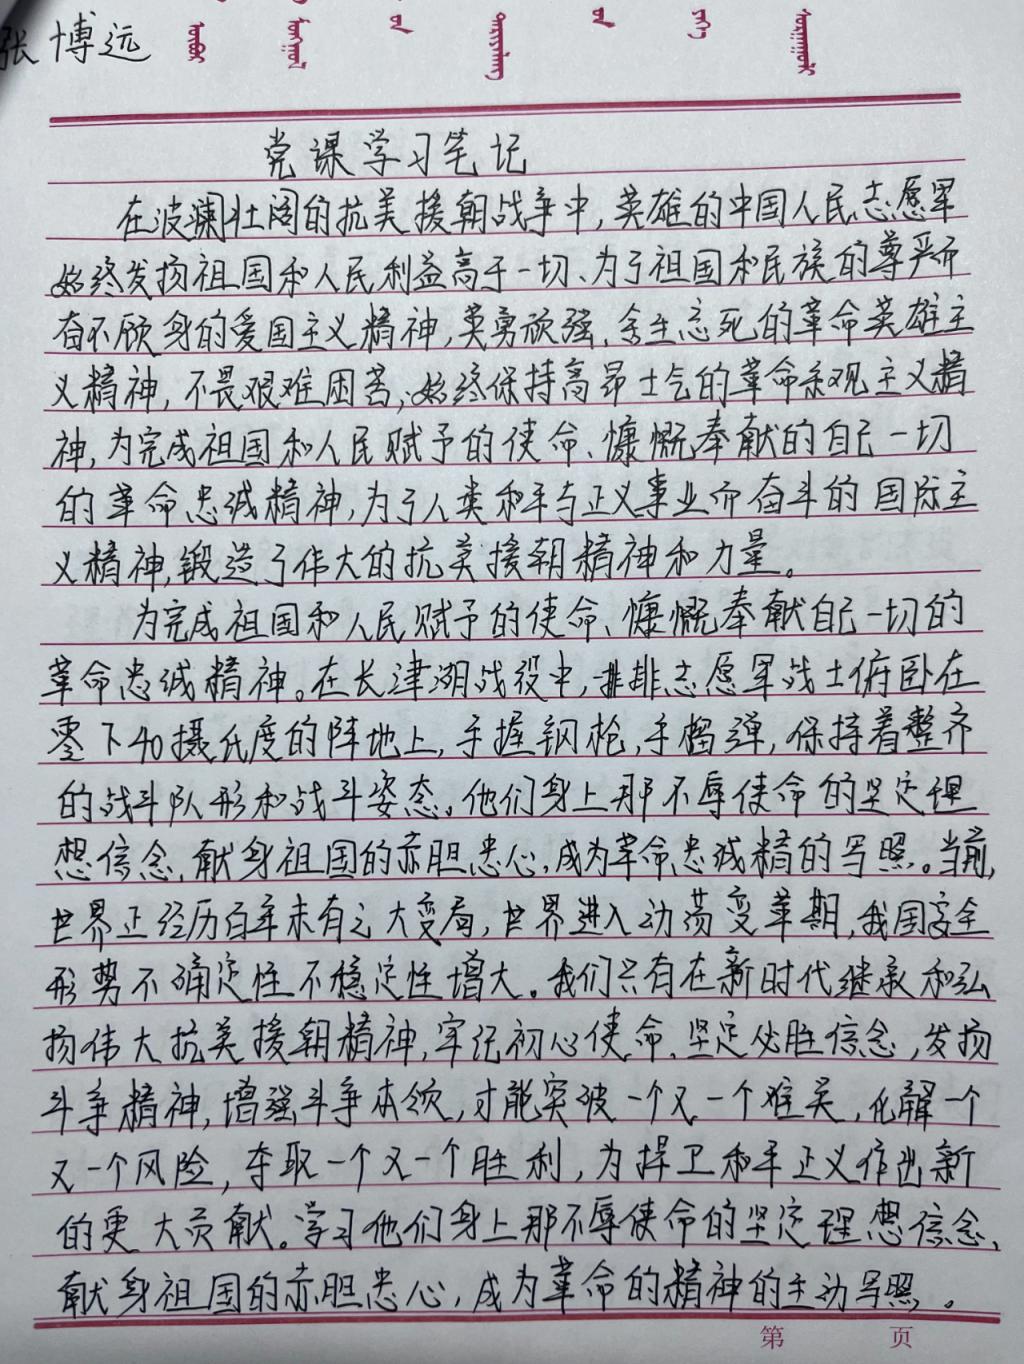 张博远
党课学习笔记
在波澜壮阔的抗美援朝战争中,英雄的中国人民志愿军
始终发扬祖国和人民利益高于一切、为了祖国和民族的尊严而
奋不顾身的爱国主义精神,英勇顽强、舍生忘死的革命英雄主
义精神,不畏艰难困苦、始终保持高昂士气的革命乐观主义精
神,为完成祖国和人民赋予的使命、慷慨奉献的自己一切
的革命忠诚精神,为了人类和平与正义事业而奋斗的国际主
义精神,锻造了伟大的抗美援朝精神和力量。
为完成祖国和人民赋予的使命、慷慨奉献自己一切的
革命忠诚精神。在长津湖战役中,排排志愿军战士俯卧在
零下40摄氏度的阵地上,手握钢枪,手榴弹,保持着整齐
的战斗队形和战斗姿态。他们身上那不辱使命的坚定理
想信念,献身祖国的赤胆忠心,成为革命忠诚精的写照。当前,
世界正经历百年未有之大变局,世界进入动荡变革期,我国安全
形势不确定性不稳定性增大。我们只有在新时代继承和弘
扬伟大抗美援朝精神,牢记初心使命、坚定必胜信念,发扬
斗争精神,增强斗争本领,才能突破一个又一个难关,化解一个
又一个风险,夺取一个又一个胜利,为捍卫和平正义作出新
的更大贡献。学习他们身上那不辱使命的坚定理想信念,
献身祖国的赤胆忠心,成为革命的精神的生动写照。
第 页